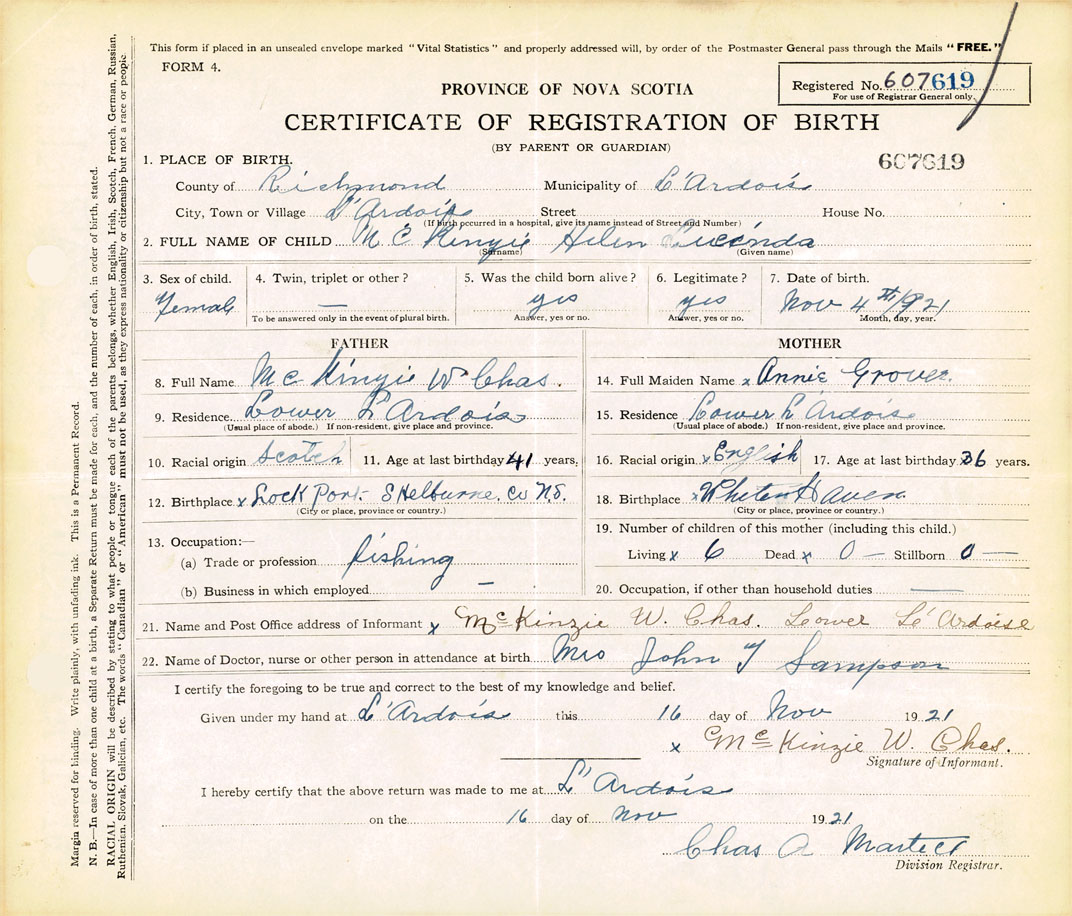 This form if placed in an unsealed envelope marked "Vital Statistics" and properly addressed will, by order of the Postmaster General pass through the Mails "FREE."
FORM 4.
Registered No. 607619
For use of Registrar General only.
PROVINCE OF NOVA SCOTIA
CERTIFICATE OF REGISTRATION OF BIRTH
(BY PARENT OR GUARDIAN)
607619
1. PLACE OF BIRTH.
County of Richmond Municipality of L'Ardois
City, Town or Village L'Ardois Street House No.
(If birth occurred in a hospital, give its name instead of Street and Number)
2. FULL NAME OF CHILD Mc Kinzie Helen Lucinda
(Surname) (Given name)
3. Sex of child. 4. Twin, triplet or other? 5. Was the child born alive? 6. Legitimate? 7. Date of birth.
Female — yes yes Nov 4th 1921
To be answered only in the event of plural birth. Answer, yes or no. Answer, yes or no. Month, day, year.
FATHER MOTHER
8. Full Name Mc Kinzie W Chas. 14. Full Maiden Name x Annie Grover.
9. Residence Lower L'Ardois 15. Residence Lower L Ardois
(Usual place of abode.) If non-resident, give place and province. (Usual place of abode.) If non-resident, give place and province.
10. Racial origin Scotch 11. Age at last birthday 41 years. 16. Racial origin x English 17. Age at last birthday 36 years.
12. Birthplace x Lock Port Shelburne. co NS. 18. Birthplace x Haven
(City or place, province or country.) (City or place, province or country.)
13. Occupation:— 19. Number of children of this mother (including this child.)
(a) Trade or profession fishing Living x 6 Dead x 0 — Stillborn 0 —
(b) Business in which employed — 20. Occupation, if other than household duties —
21. Name and Post Office address of Informant x McKinzie W. Chas. Lower L'Ardoise
22. Name of Doctor, nurse or other person in attendance at birth Mrs John Sampson
I certify the foregoing to be true and correct to the best of my knowledge and belief.
Given under my hand at L'Ardois this 16 day of Nov 1921
x McKinzie W. Chas.
Signature of Informant.
I hereby certify that the above return was made to me at L'Ardois
on the 16 day of Nov 1921
Chas A Martell
Division Registrar.
Margin reserved for binding. Write plainly, with unfading ink. This is a Permanent Record.
N. B.—In case of more than one child at a birth, a Separate Return must be made for each, and the number of each, in order of birth, stated.
RACIAL ORIGIN will be described by stating to what people or tongue each of the parents belongs, whether English, Irish, Scotch, French, German, Russian,
Ruthenian, Slovak, Galician, etc. The words "Canadian" or "American" must not be used, as they express nationality or citizenship but not a race or people